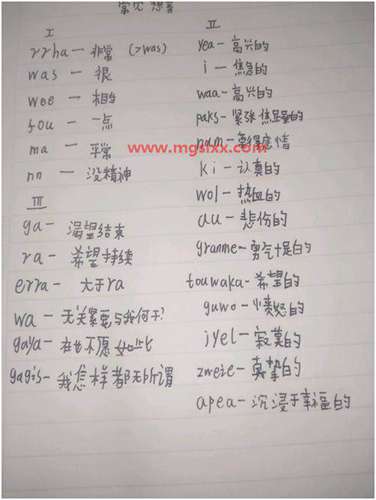 常见想音
I
rrha — 非常 (>was)
was — 很
wee — 相当
fou — 一点
ma — 平常
nn — 没精神
III
ga — 渴望结束
ra — 希望持续
erra — 大于ra
wa — 无关紧要与我何干?
gaya — 在也不愿
gagis — 我怎样都无所谓
II
yea — 高兴的
i — 焦急的
waa — 高兴的
paks — 紧张
num —
ki — 认真的
wol — 热血的
au — 悲伤的
granme — 勇气十足的
touwaka — 希望的
guwo — 愤怒的
jyel — 寂寞的
zweie — 真挚的
apea — 沉浸于幸福的
www.mgsixx.com